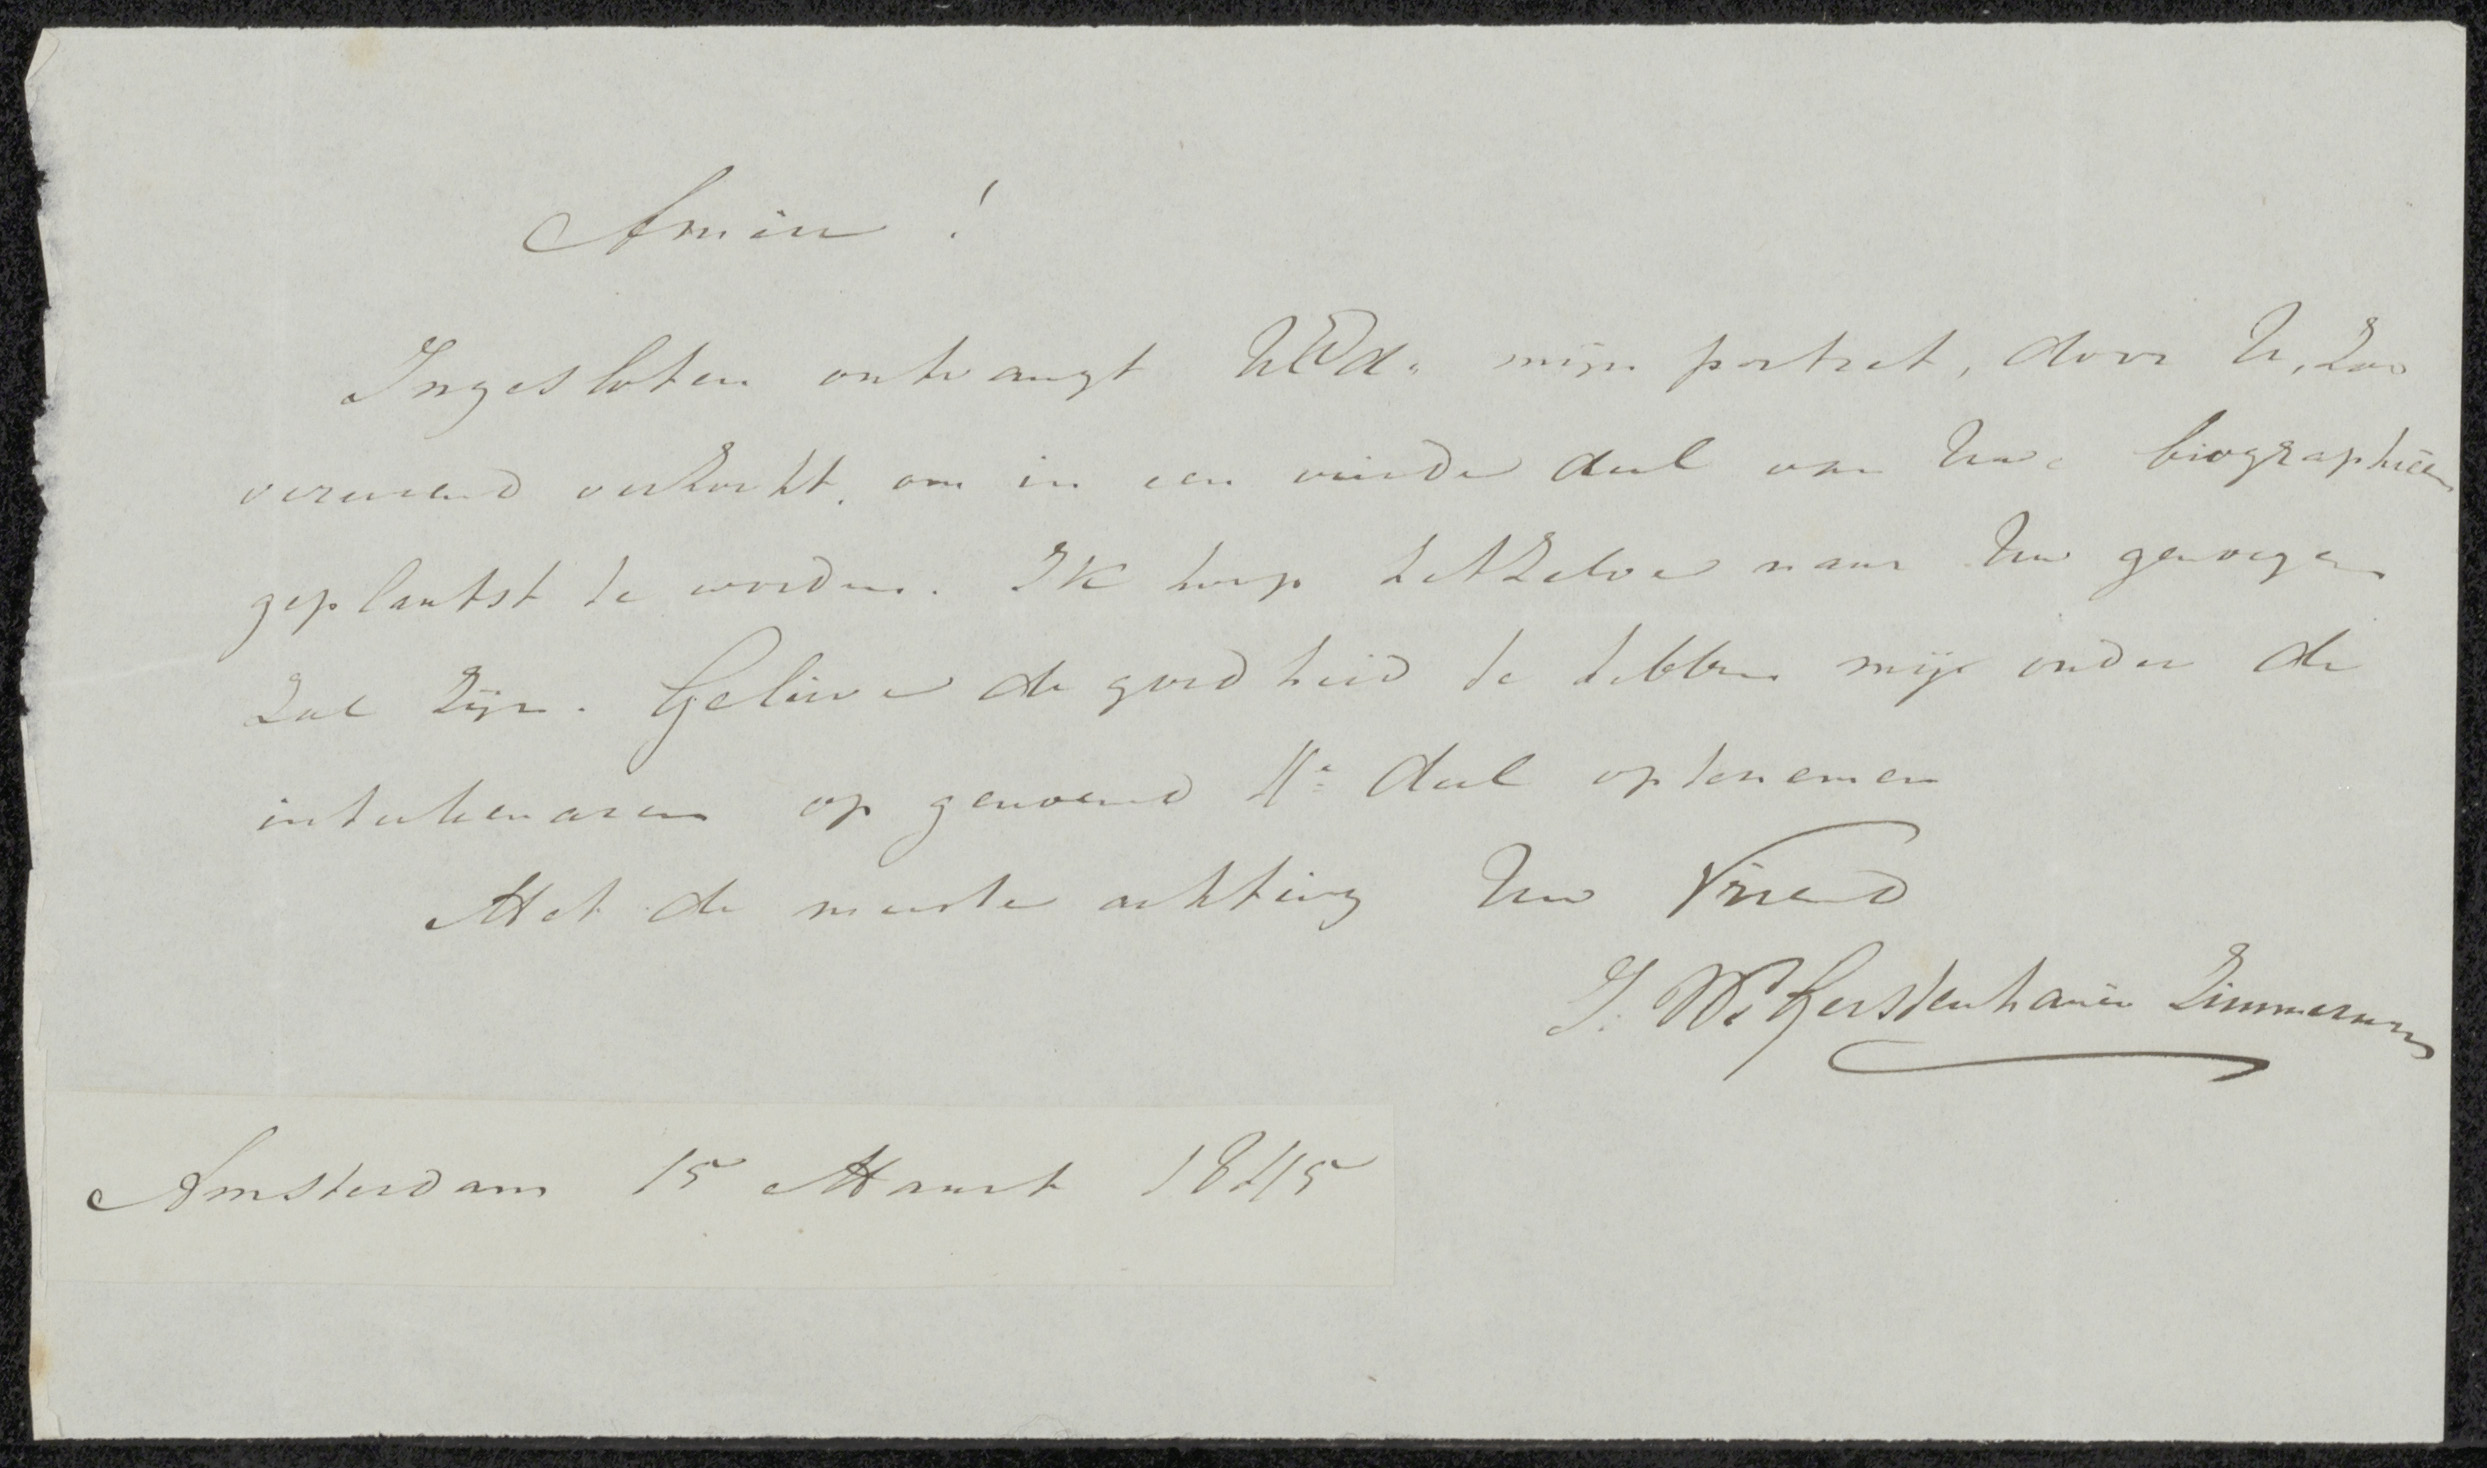 Amice !
Ingesloten ontvangt UEd. mijn portret, door U, zoo
vereerend verzocht, om in een vierde deel van Uwe biographiën
geplaatst te worden. Ik hoop hetzelve naar Uw genoegen
zal zijn. Gelieve de goedheid te hebben mij onder de
intekenaren op genoemd 4e deel optenemen
Met de meeste achting Uw Vriend
J. W. Gerstenhauer Zimmerman
Amsterdam 15 Maart 1845